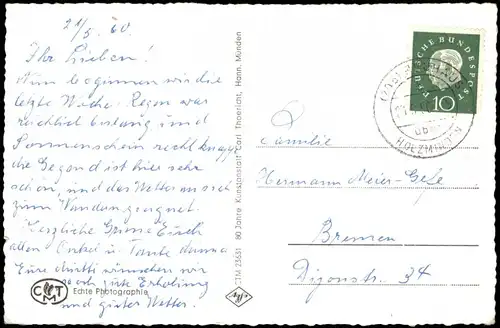 21/5. 60.
Ihr Lieben!
Nun beginnen wir die
letzte Woche. Regen war
reichlich bislang und
Sonnenschein recht knapp
die Gegend ist hier sehr
schön, und das Wetter an sich
zum Wandern geeignet.
Herzliche Grüsse Euch
allen Onkel u. Tante
Eure Mutti wünschen wir
noch gute Erholung
und gutes Wetter.
CTM
Echte Photographie
CTM 23631 80 Jahre Kunstanstalt Carl Thoericht, Hann. Münden
DEUTSCHE BUNDESPOST
10
HOLZMINDEN
Familie
Hermann Meier-Gefe
Bremen
Dijonstr. 34